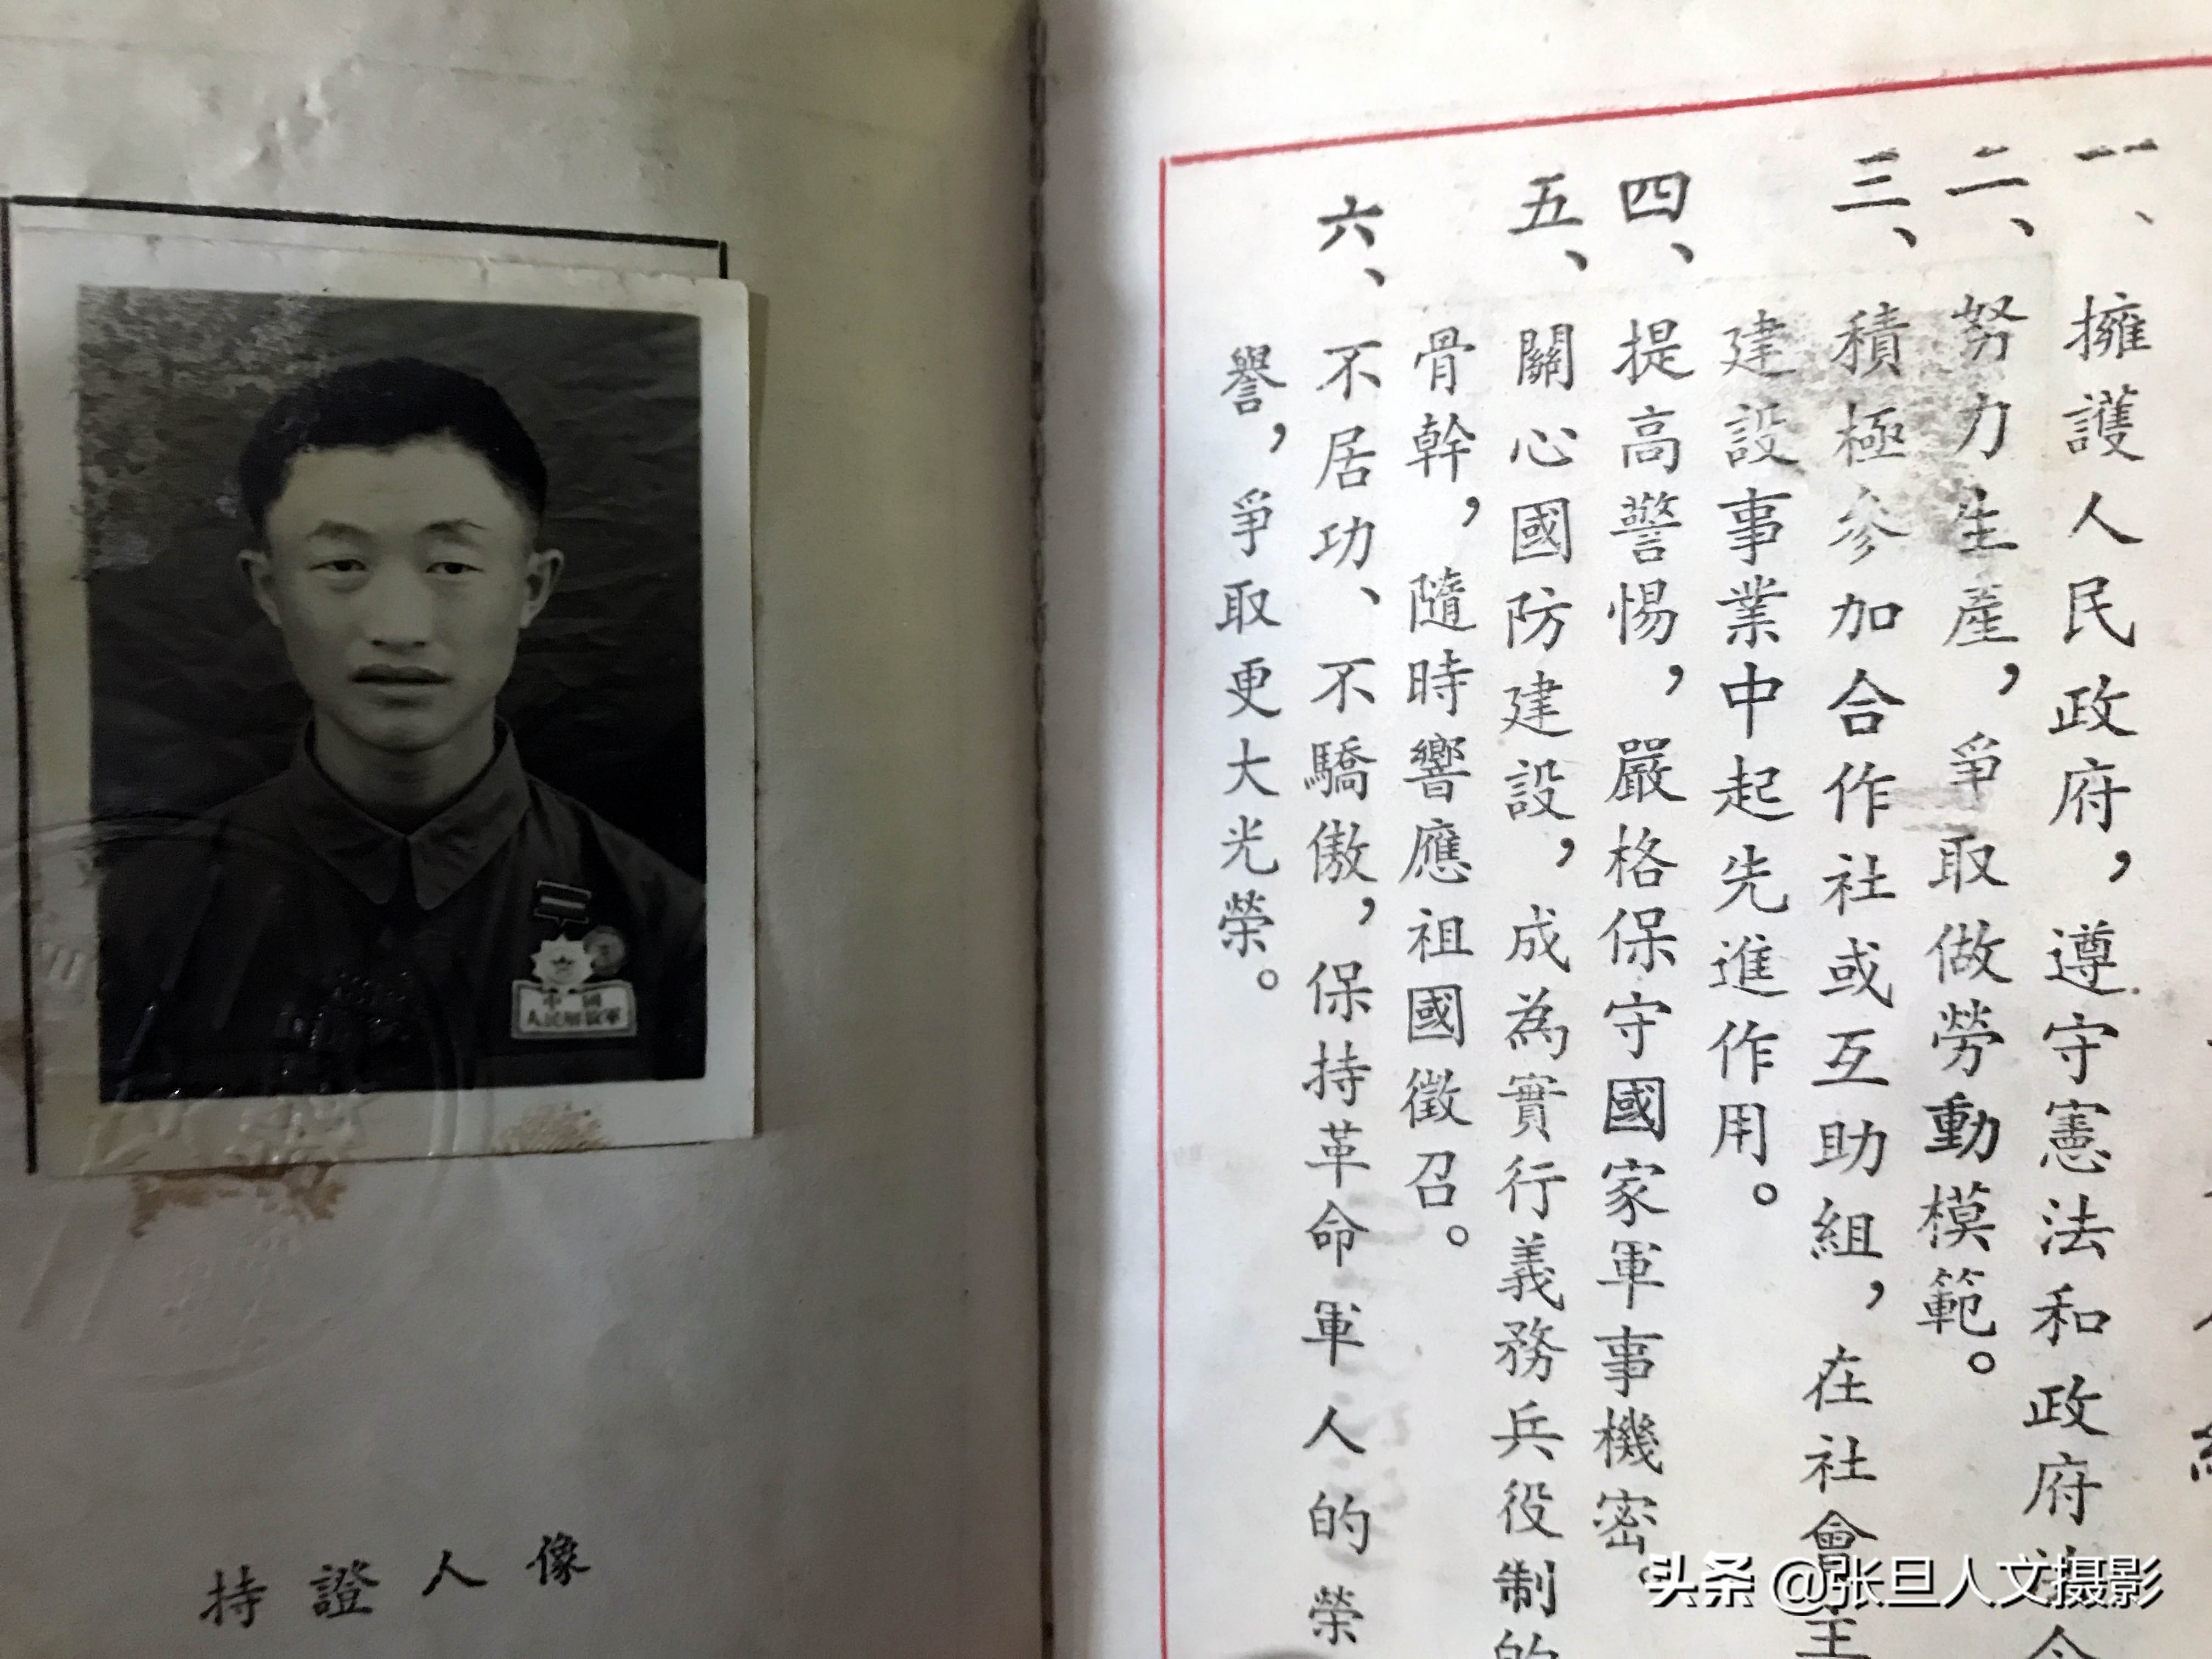 一、擁護人民政府，遵守憲法和政府法令
二、努力生產，爭取做勞動模範。
三、積極參加合作社或互助組，在社會主
建設事業中起先進作用。
四、提高警惕，嚴格保守國家軍事機密。
五、關心國防建設，成為實行義務兵役制的
骨幹，隨時響應祖國徵召。
六、不居功、不驕傲，保持革命軍人的榮
譽，爭取更大光榮。
中國
人民解放軍
持證人像
头条 @张旦人文摄影